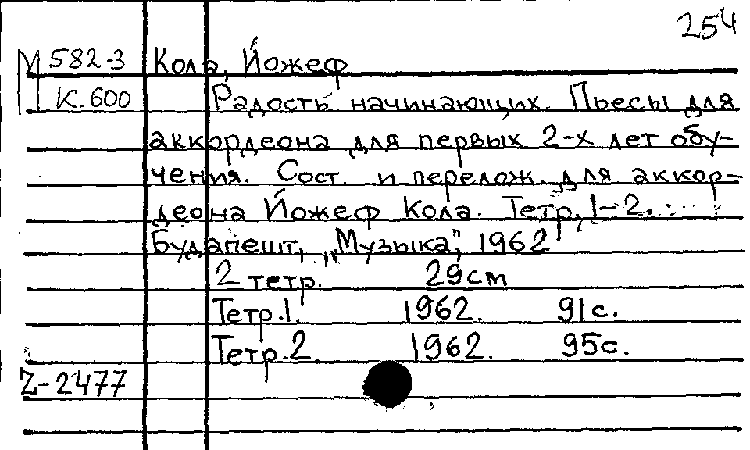 254
М 582-3 Кола, Йожеф
К. 600 Радость начинающих. Пьесы для
аккордеона для первых 2-х лет обу-
чения. Сост. и перелож. для аккор-
деона Йожеф Кола. Тетр. 1-2.
Будапешт, „Музыка", 1962
2 тетр. 29см
Тетр.1. 1962. 91с.
Тетр.2. 1962. 95с.
Z-2477